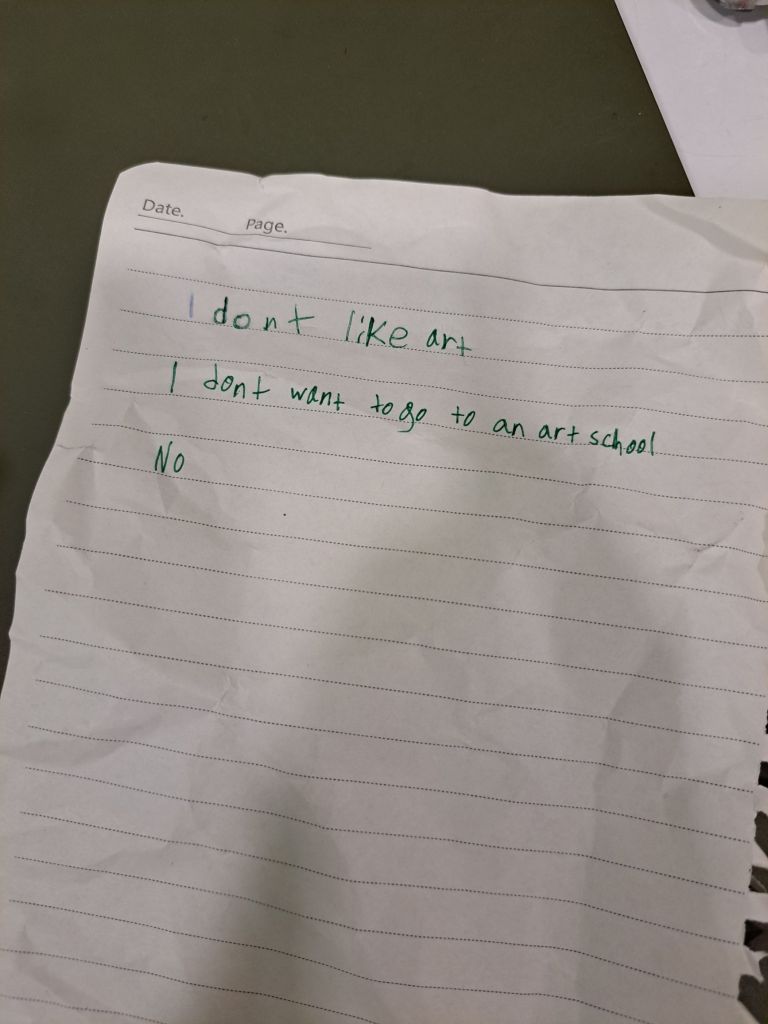 Date. Page.
I dont like art
I dont want to go to an art school
No